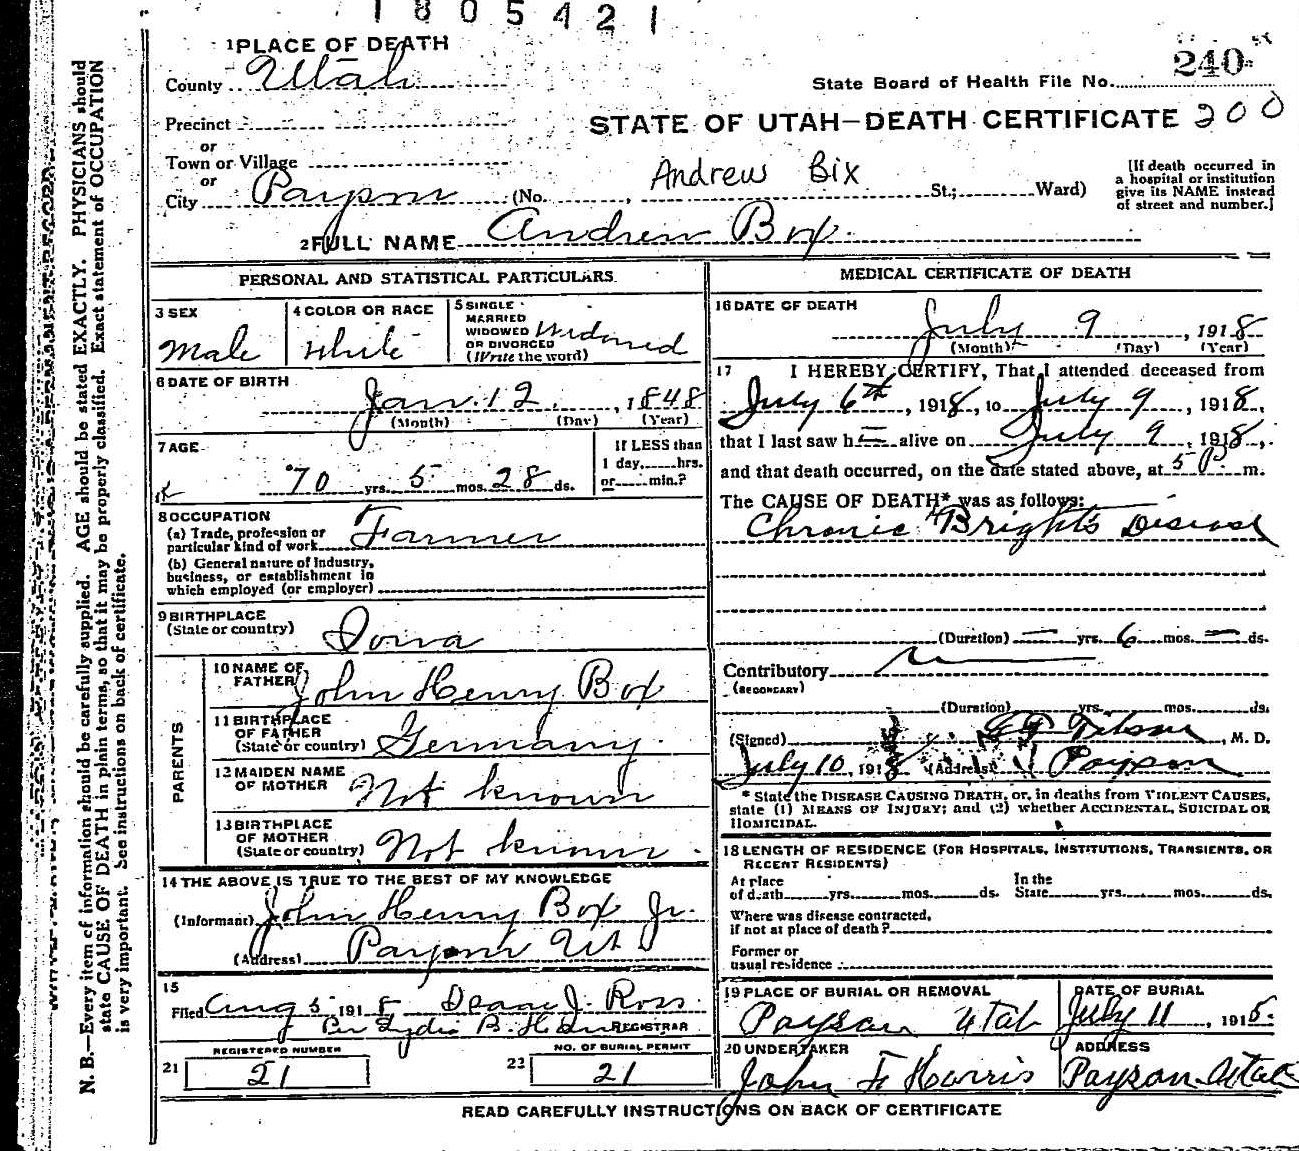 1805421
1 PLACE OF DEATH
County Utah
State Board of Health File No. 240
Precinct
STATE OF UTAH—DEATH CERTIFICATE 200
or
Town or Village
or
City Payson (No. Andrew Bix St.; Ward)
[If death occurred in
a hospital or institution
give its NAME instead
of street and number.]
2 FULL NAME Andrew Box.
PERSONAL AND STATISTICAL PARTICULARS
3 SEX
Male
4 COLOR OR RACE
White
5 SINGLE
MARRIED
WIDOWED Widowed
OR DIVORCED
(Write the word)
6 DATE OF BIRTH
Jan. 12, 1848
(Month) (Day) (Year)
7 AGE
70 yrs. 5 mos. 28 ds.
If LESS than
1 day, hrs.
or min.?
8 OCCUPATION
(a) Trade, profession or
particular kind of work Farmer
(b) General nature of Industry,
business, or establishment in
which employed (or employer)
9 BIRTHPLACE
(State or country) Iowa
PARENTS
10 NAME OF
FATHER John Henry Box
11 BIRTHPLACE
OF FATHER
(State or country) Germany.
12 MAIDEN NAME
OF MOTHER Not known
13 BIRTHPLACE
OF MOTHER
(State or country) Not known
14 THE ABOVE IS TRUE TO THE BEST OF MY KNOWLEDGE
(Informant) John Henry Box Jr.
(Address) Payson Ut
15
Filed Aug 5, 1918 J. Ross
Per Lydia B. REGISTRAR
REGISTERED NUMBER
21 21
NO. OF BURIAL PERMIT
23 21
MEDICAL CERTIFICATE OF DEATH
16 DATE OF DEATH
July 9, 1918
(Month) (Day) (Year)
17 I HEREBY CERTIFY, That I attended deceased from
July 6th, 1918, to July 9, 1918,
that I last saw h alive on July 9, 1918,
and that death occurred, on the date stated above, at 5 P. m.
The CAUSE OF DEATH* was as follows:
Chronic Brights Disease
(Duration) — yrs. 6 mos. — ds.
Contributory
(SECONDARY)
(Duration) yrs. mos. ds.
(Signed) , M. D.
July 10, 1918 (Address) Payson
* State the DISEASE CAUSING DEATH, or, in deaths from VIOLENT CAUSES,
state (1) MEANS OF INJURY; and (2) whether ACCIDENTAL, SUICIDAL OR
HOMICIDAL.
18 LENGTH OF RESIDENCE (FOR HOSPITALS, INSTITUTIONS, TRANSIENTS, OR
RECENT RESIDENTS)
At place
of death yrs. mos. ds.
In the
State yrs. mos. ds.
Where was disease contracted,
if not at place of death?
Former or
usual residence
19 PLACE OF BURIAL OR REMOVAL
Payson Utah
DATE OF BURIAL
July 11, 1918.
20 UNDERTAKER
John F Harris
ADDRESS
Payson Utah
READ CAREFULLY INSTRUCTIONS ON BACK OF CERTIFICATE
N. B.—Every item of information should be carefully supplied. AGE should be stated EXACTLY. PHYSICIANS should
state CAUSE OF DEATH in plain terms, so that it may be properly classified. Exact statement of OCCUPATION
is very important. See instructions on back of certificate.